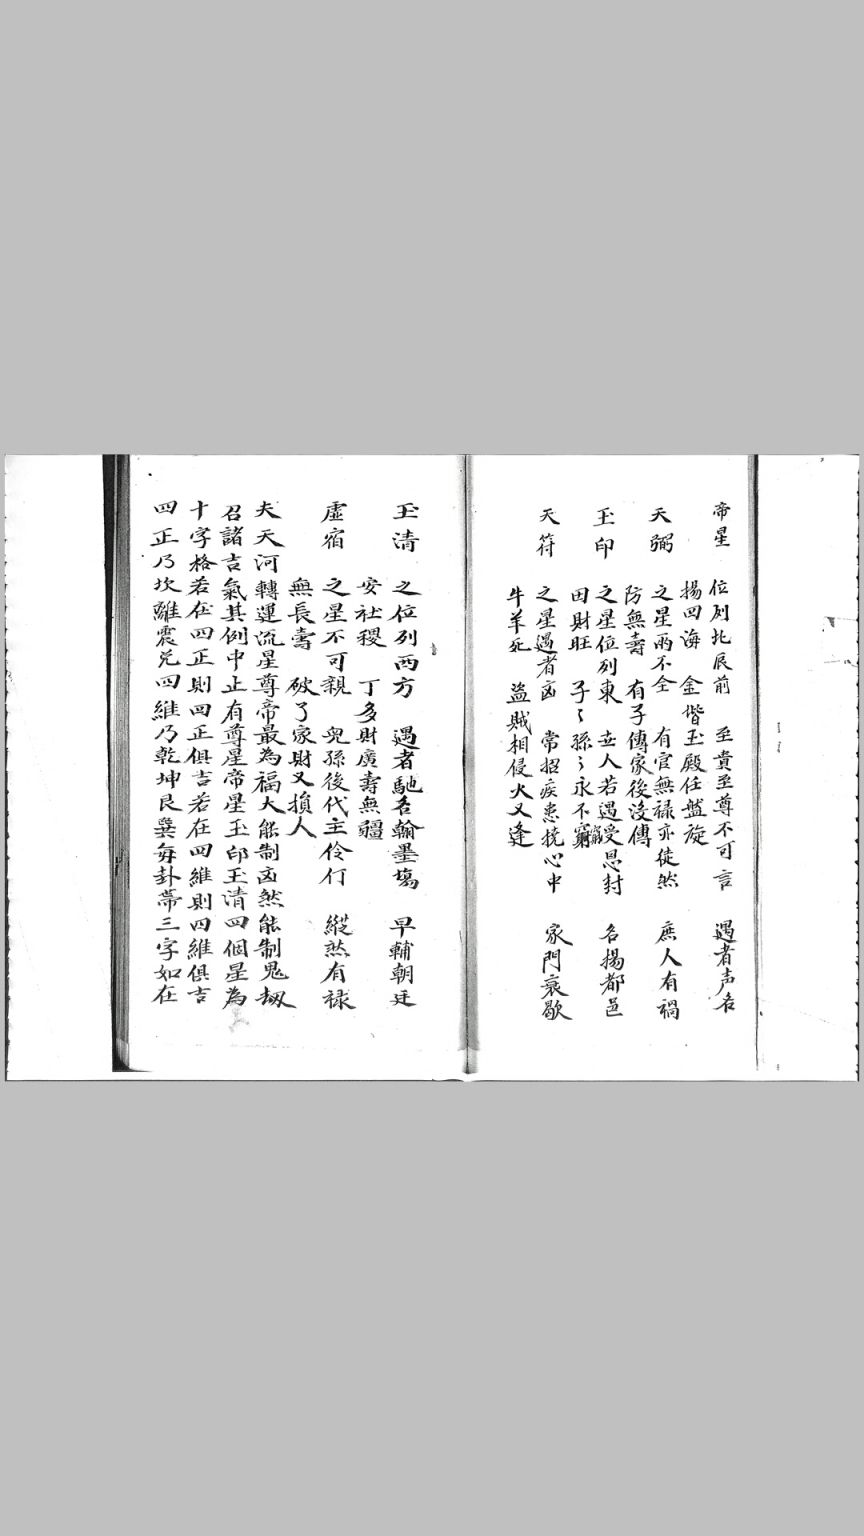 帝星 位列北辰前 至貴至尊不可言 遇者声名
揚四海 金堦玉殿任盤旋
天弼 之星兩不全 有官無禄亦徒然 庶人有禍
防無壽 有子傳家後沒傳
玉印 之星位列東 世人若遇受恩封 名揚都邑
田財旺 子〻孫〻永不窮
天符 之星遇者凶 常招疾患撓心中 家門衰歇
牛羊死 盜賊相侵火又逢
玉清 之位列西方 遇者馳名翰墨塲 早輔朝廷
安社稷 丁多財廣壽無疆
虛宿 之星不可親 兒孫後代主伶仃 縱然有禄
無長壽 破了家財又損人
夫天河轉運流星尊帝最為福大能制凶然能制鬼刼
召諸吉氣其例中止有尊星帝星玉印玉清四個星為
十字格若在四正則四正俱吉若在四維則四維俱吉
四正乃坎離震兌四維乃乾坤艮巽每卦帶三字如在